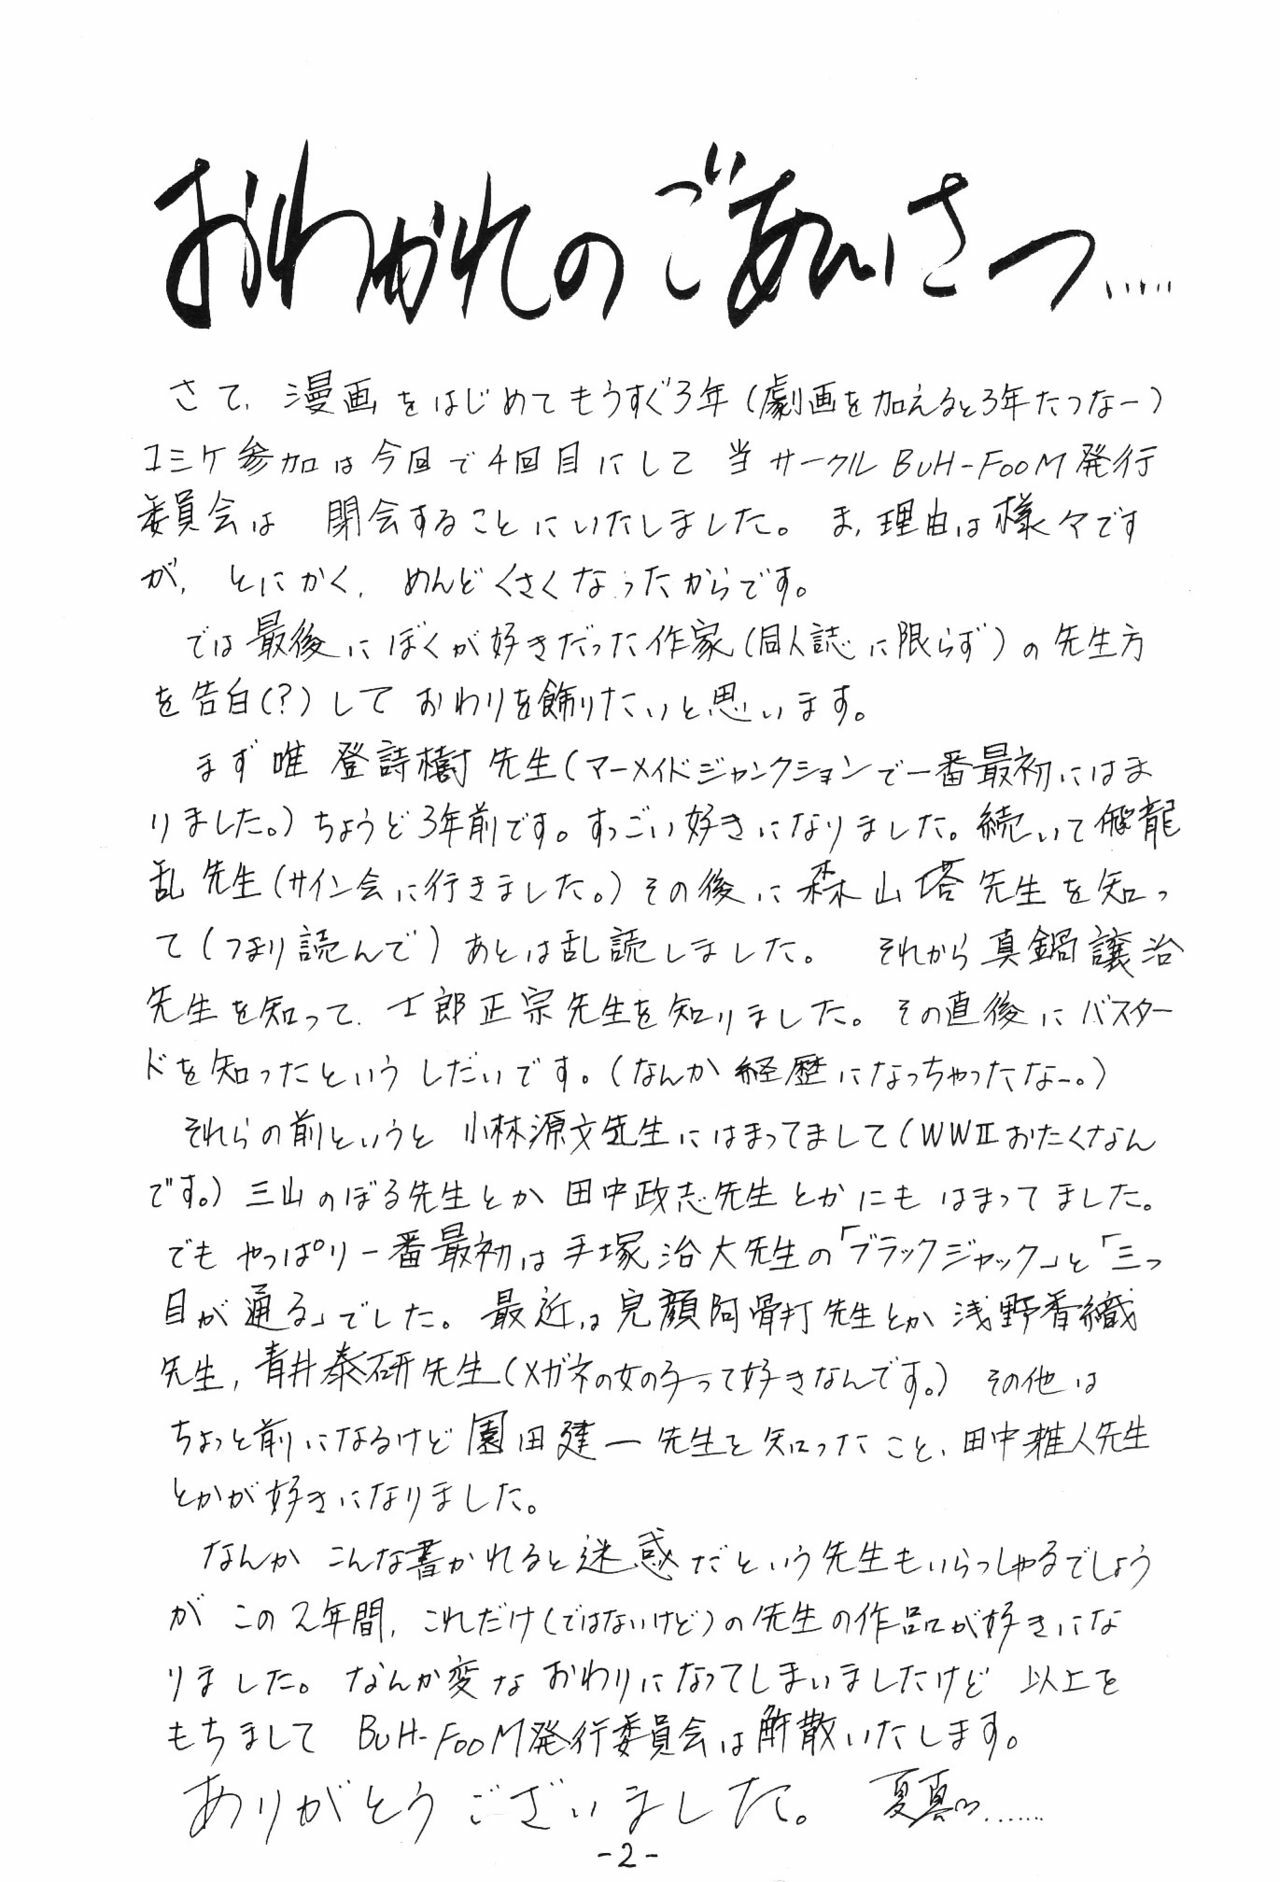 おわかれのごあいさつ.....
さて、漫画をはじめてもうすぐ3年(劇画を加えると3年たつなー)
コミケ参加は今回で4回目にして 当サークルBUH-FOOM発行
委員会は 閉会することにいたしました。ま、理由は様々です
が、とにかく、めんどくさくなったからです。
では最後にぼくが好きだった作家(同人誌に限らず)の先生方
を告白(?)して おわりを飾りたいと思います。
まず唯 登詩樹先生(マーメイドジャンクションで一番最初にはま
りました。)ちょうど3年前です。すっごい好きになりました。続いて飛龍
乱先生(サイン会に行きました。)その後に森山塔先生を知っ
て(つまり読んで)あとは乱読しました。 それから真鍋譲治
先生を知って、士郎正宗先生を知りました。その直後にバスター
ドを知ったというしだいです。(なんか経歴になっちゃったなー。)
それらの前というと 小林源文先生にはまってまして(WWIIおたくなん
です。)三山のぼる先生とか田中政志先生とかにもはまってました。
でもやっぱり一番最初は手塚治大先生の「ブラックジャック」と「三つ
目が通る」でした。最近は児顔阿骨打先生とか浅野香織
先生,青井泰研先生(メガネの女の子って好きなんです。) その他は
ちょっと前になるけど園田建一先生を知ったこと、田中雅人先生
とかが好きになりました。
なんか こんな書かれると迷惑だという先生もいらっしゃるでしょう
が この2年間、これだけ(ではないけど)の先生の作品が好きにな
りました。なんか変なおわりになってしまいましたけど 以上を
もちまして BUH-FOOM発行委員会は解散いたします。
ありがとうございました。 夏真っ......
-2-